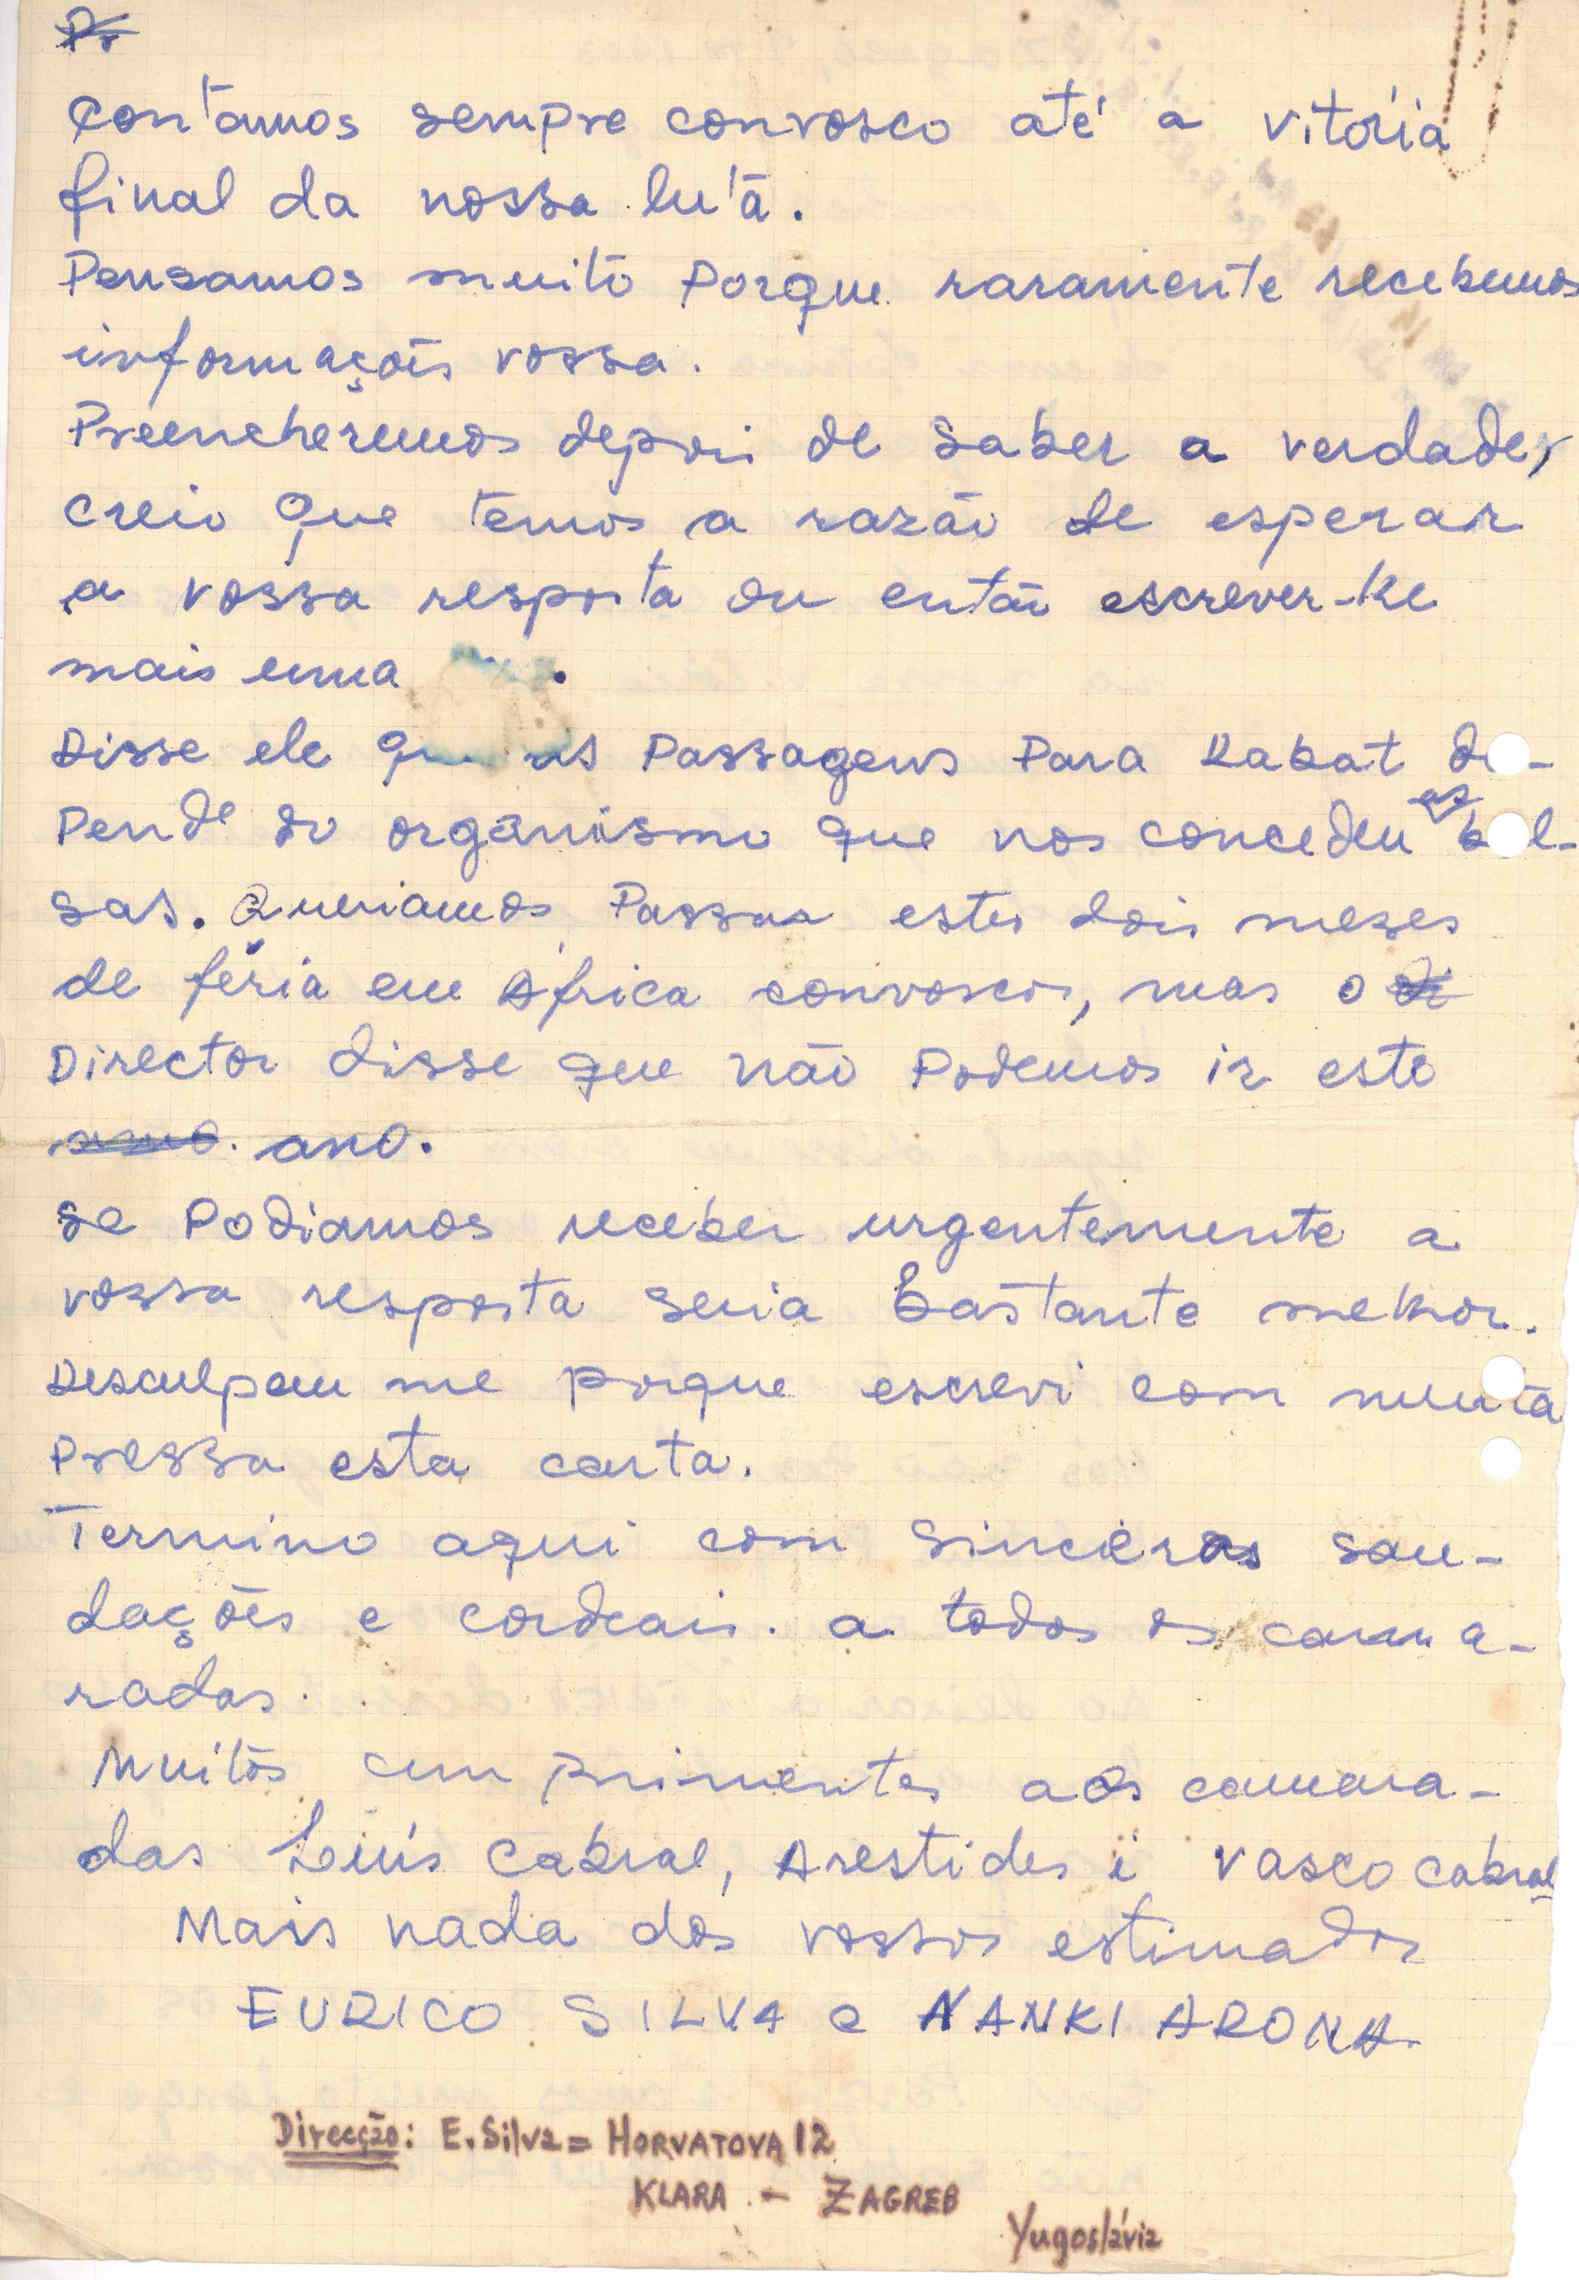 Contamos sempre convosco até a vitória
final da nossa luta.
Pensamos muito porque raramente recebemos
informações vossa.
Preencheremos depois de saber a verdade,
creio que temos a razão de esperar
a vossa resposta ou então escrever-lhe
mais uma
Disse ele que as Passagens Para Rabat de-
pende do organismo que nos concedeu as bol-
sas. Queriamos Passar estes dois mezes
de féria em África convosco, mas o
Director disse que não Podemos ir este
ano.
Se Podiamos receber urgentemente a
vossa resposta seria bastante melhor.
Desculpem me porque escrevi com muita
Pressa esta carta.
Termino aqui com sinceras sau-
dações e cordeais. a todos os cama-
radas.
Muitos cumprimentos aos camara-
das Luís Cabral, Arestides i Vasco Cabral
Mais nada dos vossos estimados
EURICO SILVA e NANKI ARONA
Direcção: E. Silva = HORVATOVA 12
KLARA - ZAGREB
Yugoslávia